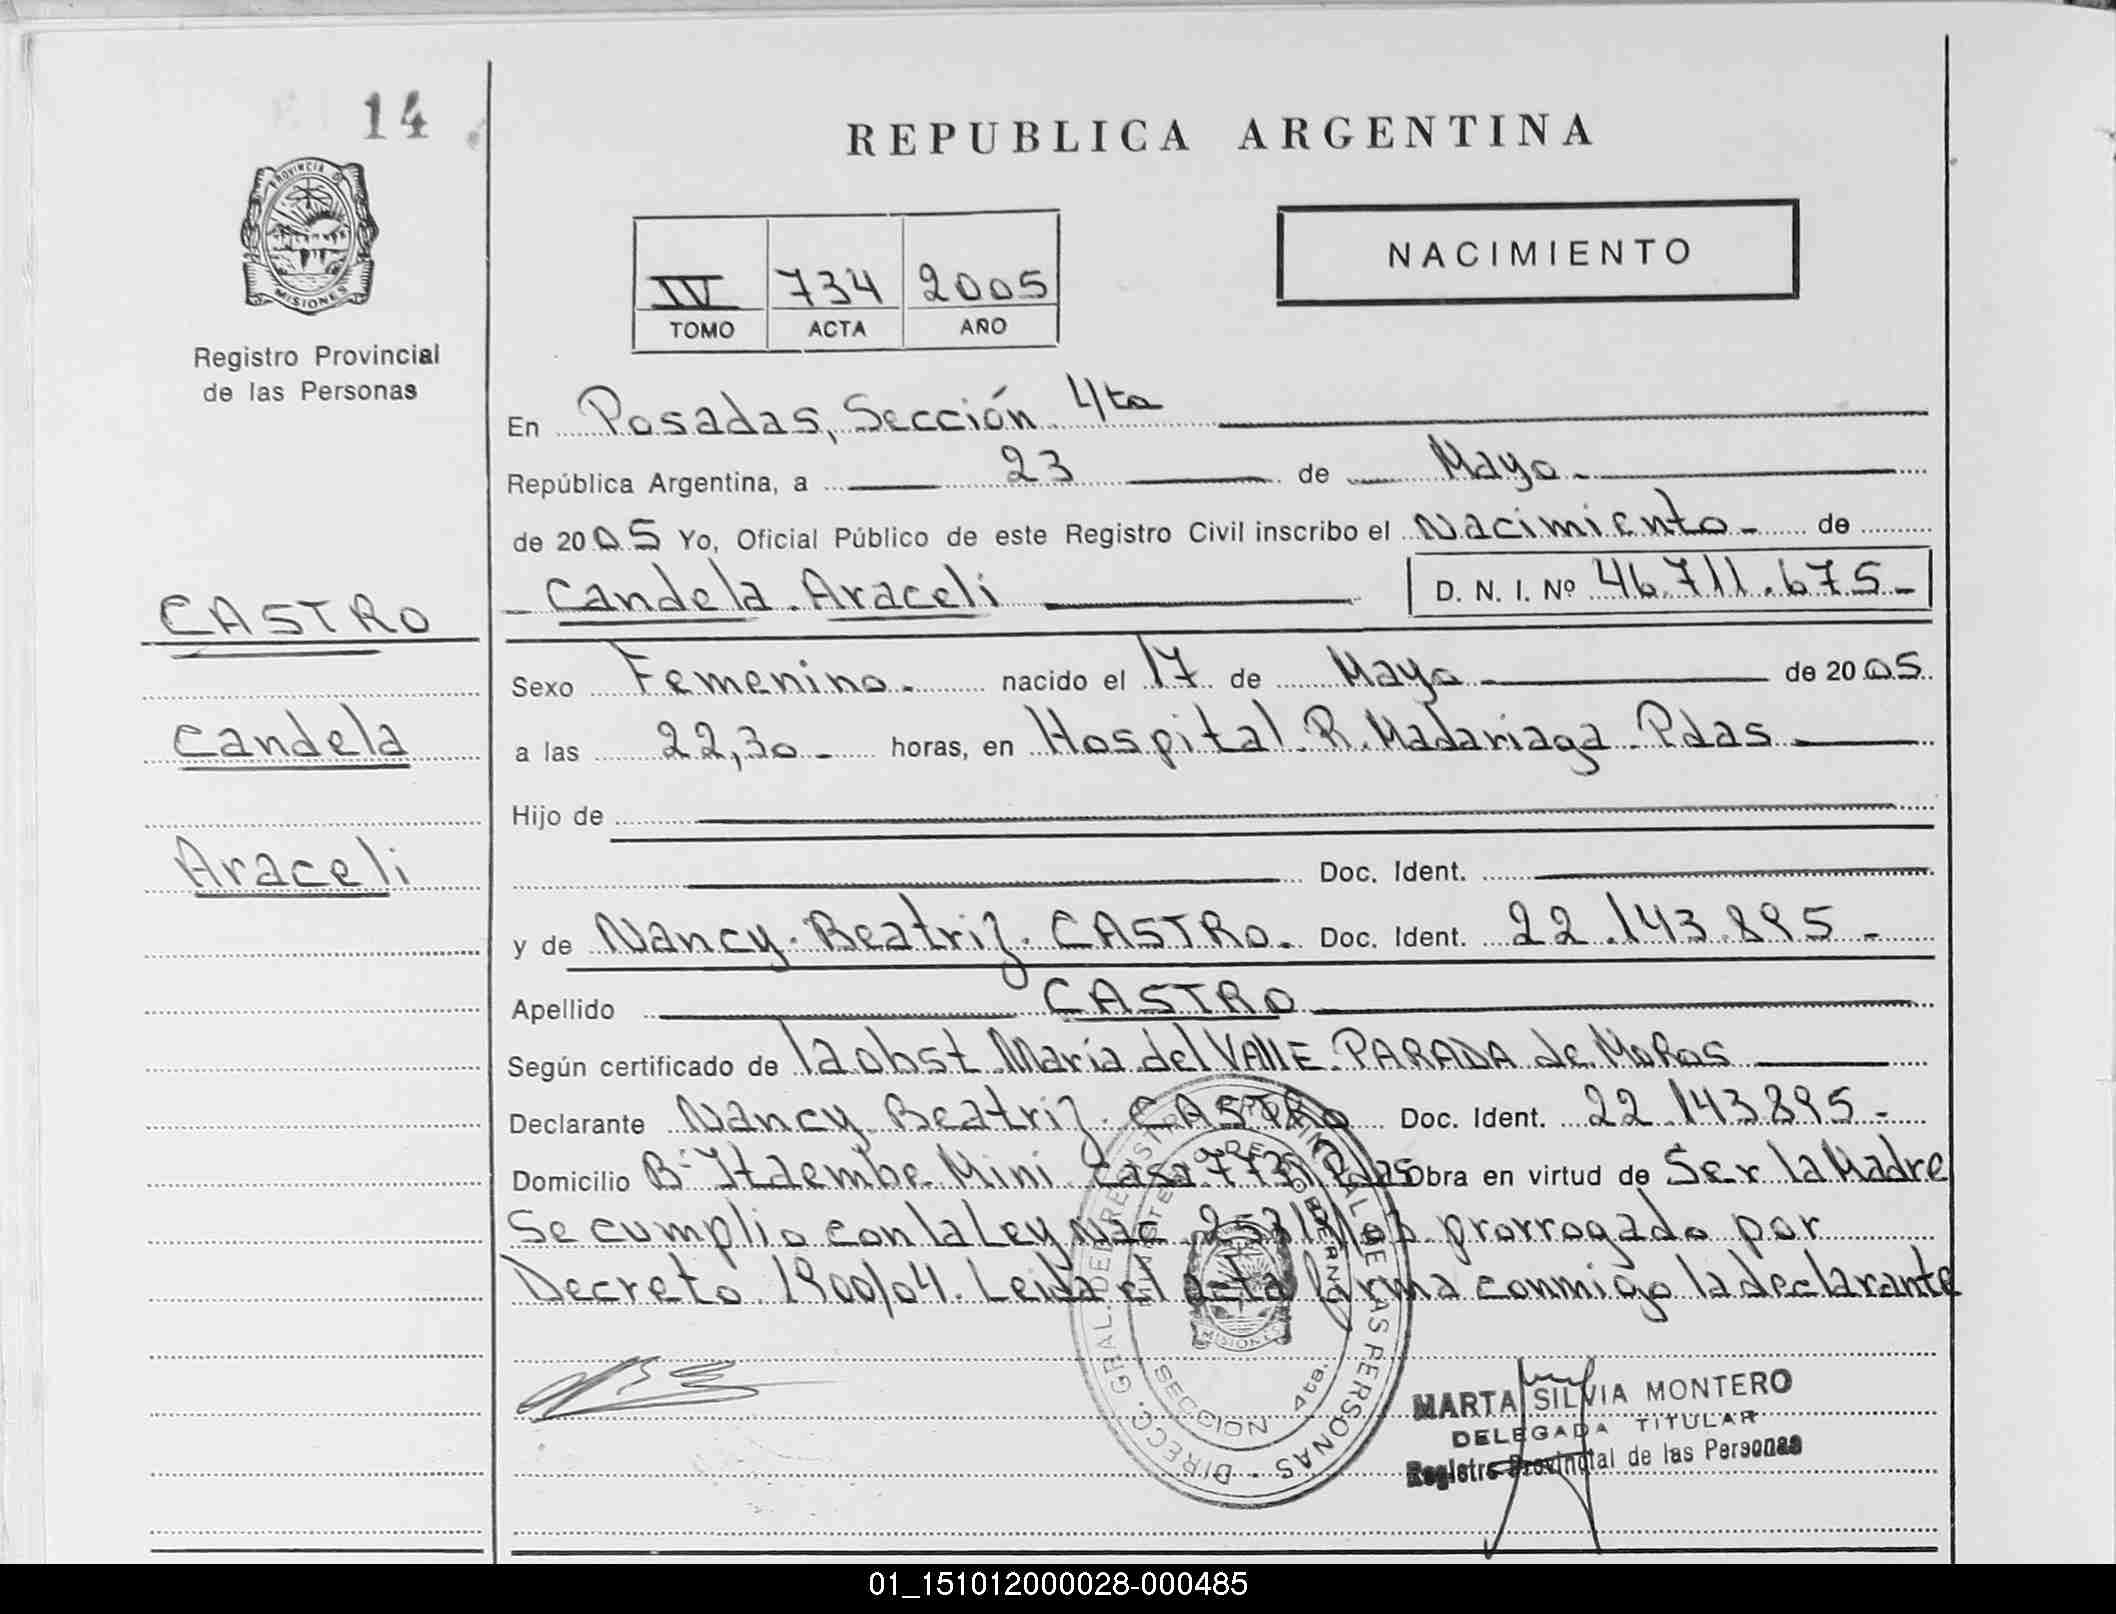 14
REPUBLICA ARGENTINA
PROVINCIA DE
MISIONES
Registro Provincial
de las Personas
NACIMIENTO
IV 734 2005
TOMO ACTA AÑO
En Posadas, Sección 4ta
República Argentina, a 23 de Mayo
de 2005 Yo, Oficial Público de este Registro Civil inscribo el Nacimiento - de
Candela Araceli D. N. I. Nº 46.711.675-
CASTRO
Candela
Araceli
Sexo Femenino. nacido el 17 de Mayo de 2005.
a las 22,30 horas, en Hospital R. Madariaga Pdas
Hijo de
Doc. Ident.
y de Nancy Beatriz CASTRO. Doc. Ident. 22.143.895-
Apellido CASTRO
Según certificado de la obst María del VALLE PARADA de MoRas
Declarante Nancy Beatriz CASTRO Doc. Ident. 22.143.895-
Domicilio Bº Itaembe Mini Casa Pdas Obra en virtud de Ser la Madre
Se cumplio con la Ley Nac prorrogado por
Decreto 1900/04. Leida el acta firma conmigo la declarante
DIRECC. GRAL. DEL REGISTRO PROVINCIAL DE LAS PERSONAS
SECCION 4ta.
MISIONES
MARTA SILVIA MONTERO
DELEGADA TITULAR
Registro Provincial de las Personas
01_151012000028-000485